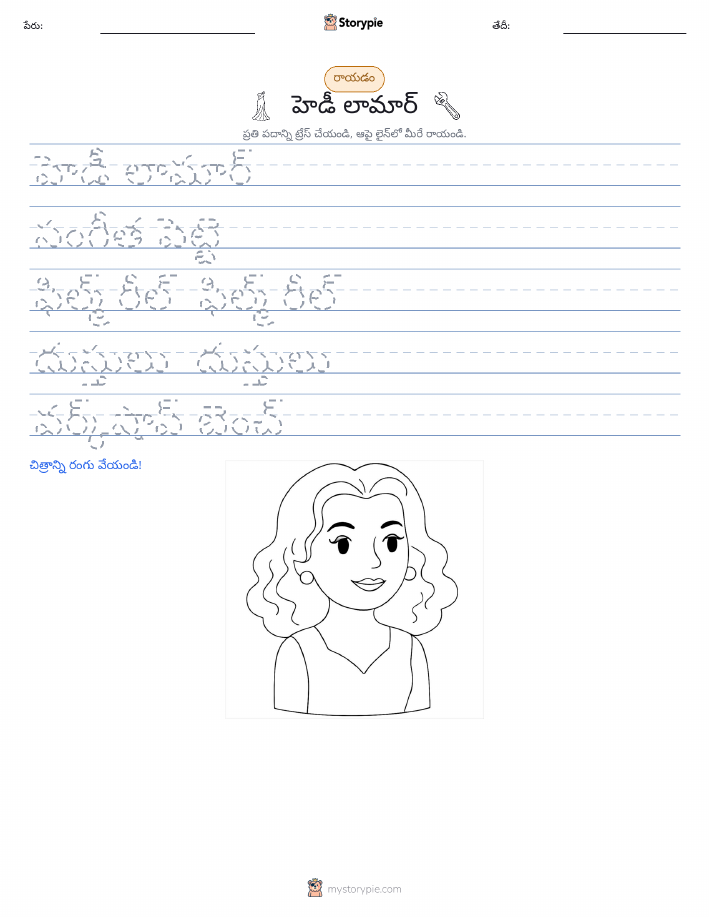 పేరు:
Storypie
తేదీ:
రాయడం
హెడీ లామార్
ప్రతి పదాన్ని ట్రేస్ చేయండి, ఆపై లైన్‌లో మీరే రాయండి.
హెడీ లామార్
సంగీత పెట్టె
ఫిల్మ్ రీల్ ఫిల్మ్ రీల్
దుస్తులు దుస్తులు
వర్క్‌షాప్ బెంచ్
చిత్రాన్ని రంగు వేయండి!
mystorypie.com